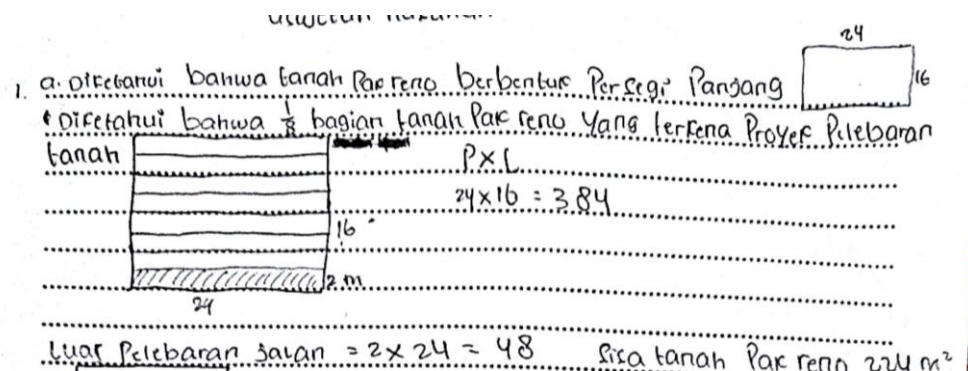 24
1. a. Diketahui bahwa tanah Pak reno berbentuk Persegi Panjang
16
• Diketahui bahwa 1/8 bagian tanah Pak reno yang terkena Proyek Pelebaran
tanah
P x L
24 x 16 = 384
16
2 m
24
Luas Pelebaran jalan = 2 x 24 = 48 Sisa tanah Pak reno 224 m²